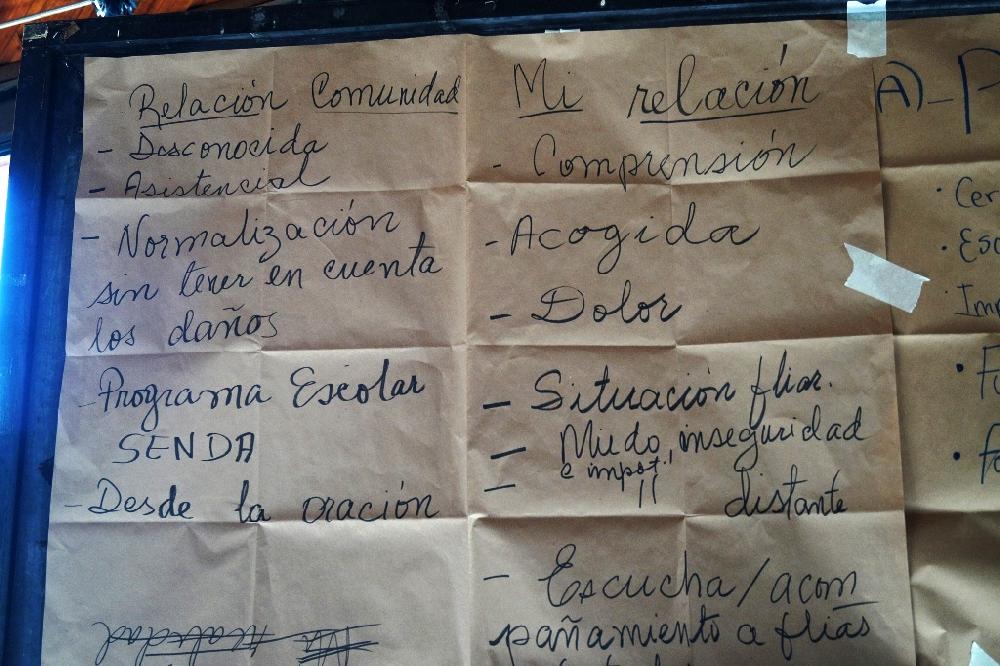 Relación Comunidad
- Desconocida
- Asistencial
- Normalización
sin tener en cuenta
los daños
- Programa Escolar
SENDA
- Desde la oración
Mi relación
- Comprensión
- Acogida
- Dolor
- Situación fliar.
- Miedo, inseguridad
e impot.,
- " distante
- Escucha/acom
pañamiento a flias
A) - P
· Cer
· Esc
Imp
· F
· fo